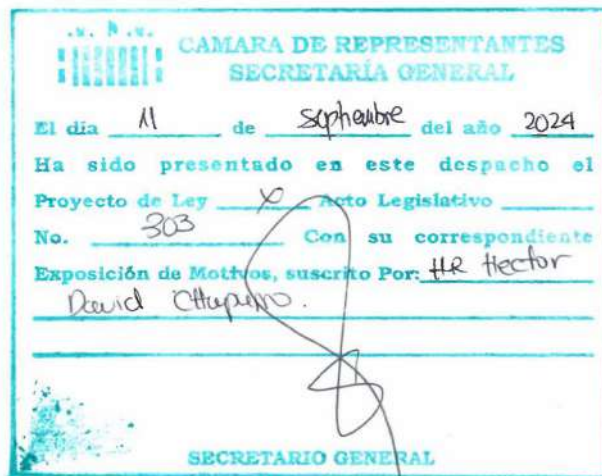 CAMARA DE REPRESENTANTES
SECRETARÍA GENERAL
El dia 11 de septiembre del año 2024
Ha sido presentado en este despacho el
Proyecto de Ley X Acto Legislativo
No. 303 Con su correspondiente
Exposición de Motivos, suscrito Por: HR Hector
David
SECRETARIO GENERAL